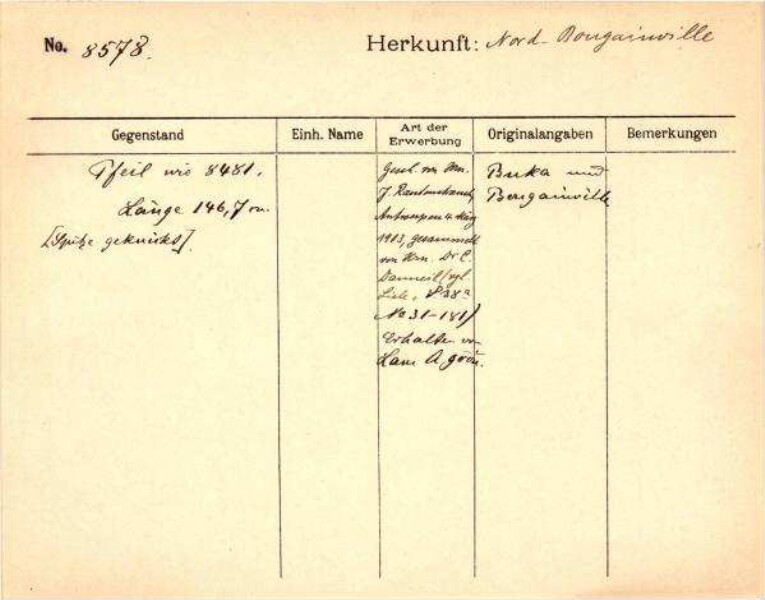 No. 8578. Herkunft: Nord-Bougainville
Gegenstand
Einh. Name
Art der Erwerbung
Originalangaben
Bemerkungen
Pfeil wie 8481.
Länge 146,7 cm.
[Spitze geknickt].
Gesch. von Hrn.
J.
Antwerpen 4. März
1913, gesammelt
von Hrn. Dr C.
Danneil (vgl.
Liste. 838a
No 31-181)
Erhalten von
Buka und
Bougainville